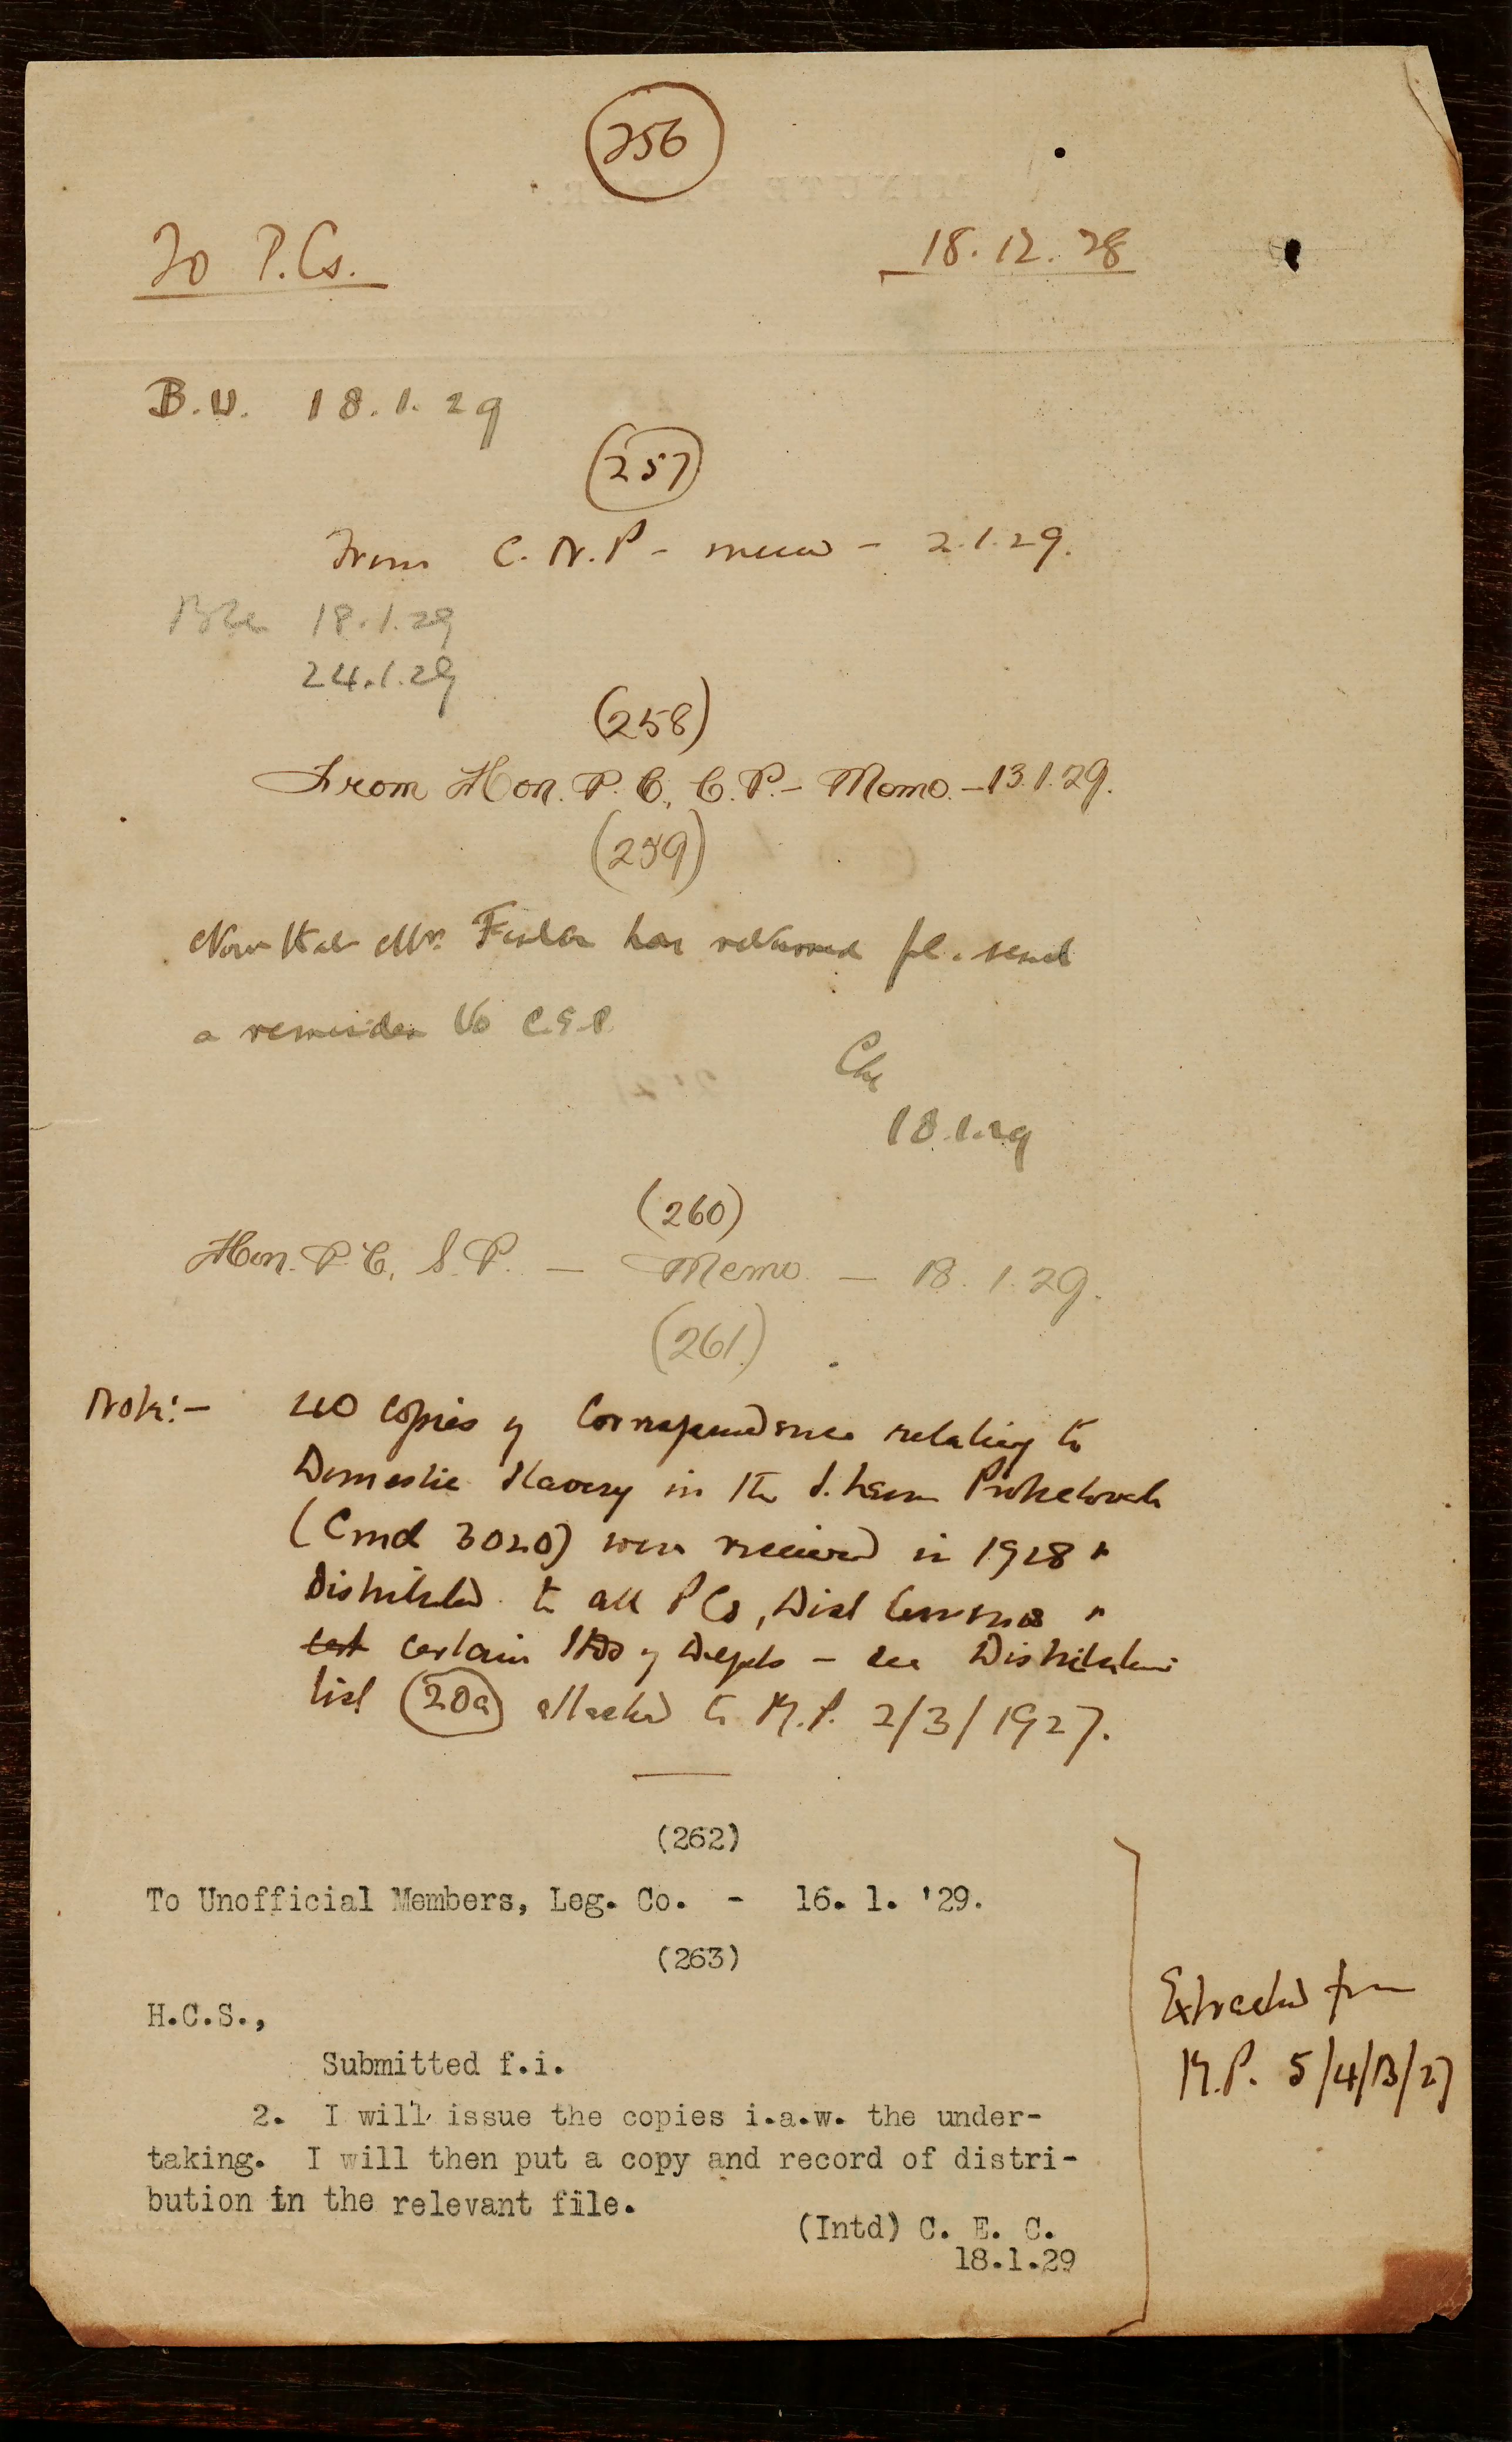 256
To P.Cs.
18.12.28
B.U. 18.1.29
(257)
From C.N.P - memo - 2.1.29.
18.1.29
24.1.29
(258)
From Hon. P.C., C.P. - Memo. - 13.1.29.
(259)
Now that Mr. has returned pl. send
a reminder to C.S.P.
18.1.29
(260)
Hon. P.C., S.P. - Memo. - 18.1.29.
(261)
Note:- 40 copies of Correspondence relating to
Domestic Slavery in the S. Leone Protectorate
(Cmd 3020) were received in 1928 &
Distributed to all PCs, Dist Commrs &
cert certain Hds of Depts - see Distribution
list (20a) attached to M.P. 2/3/1927.
(262)
To Unofficial Members, Leg. Co. - 16. 1. '29.
(263)
H.C.S.,
Submitted f.i.
2. I will issue the copies i.a.w. the under-
taking. I will then put a copy and record of distri-
bution in the relevant file.
(Intd) C. E. C.
18.1.29
Extracted from
M.P. 5/4/B/27